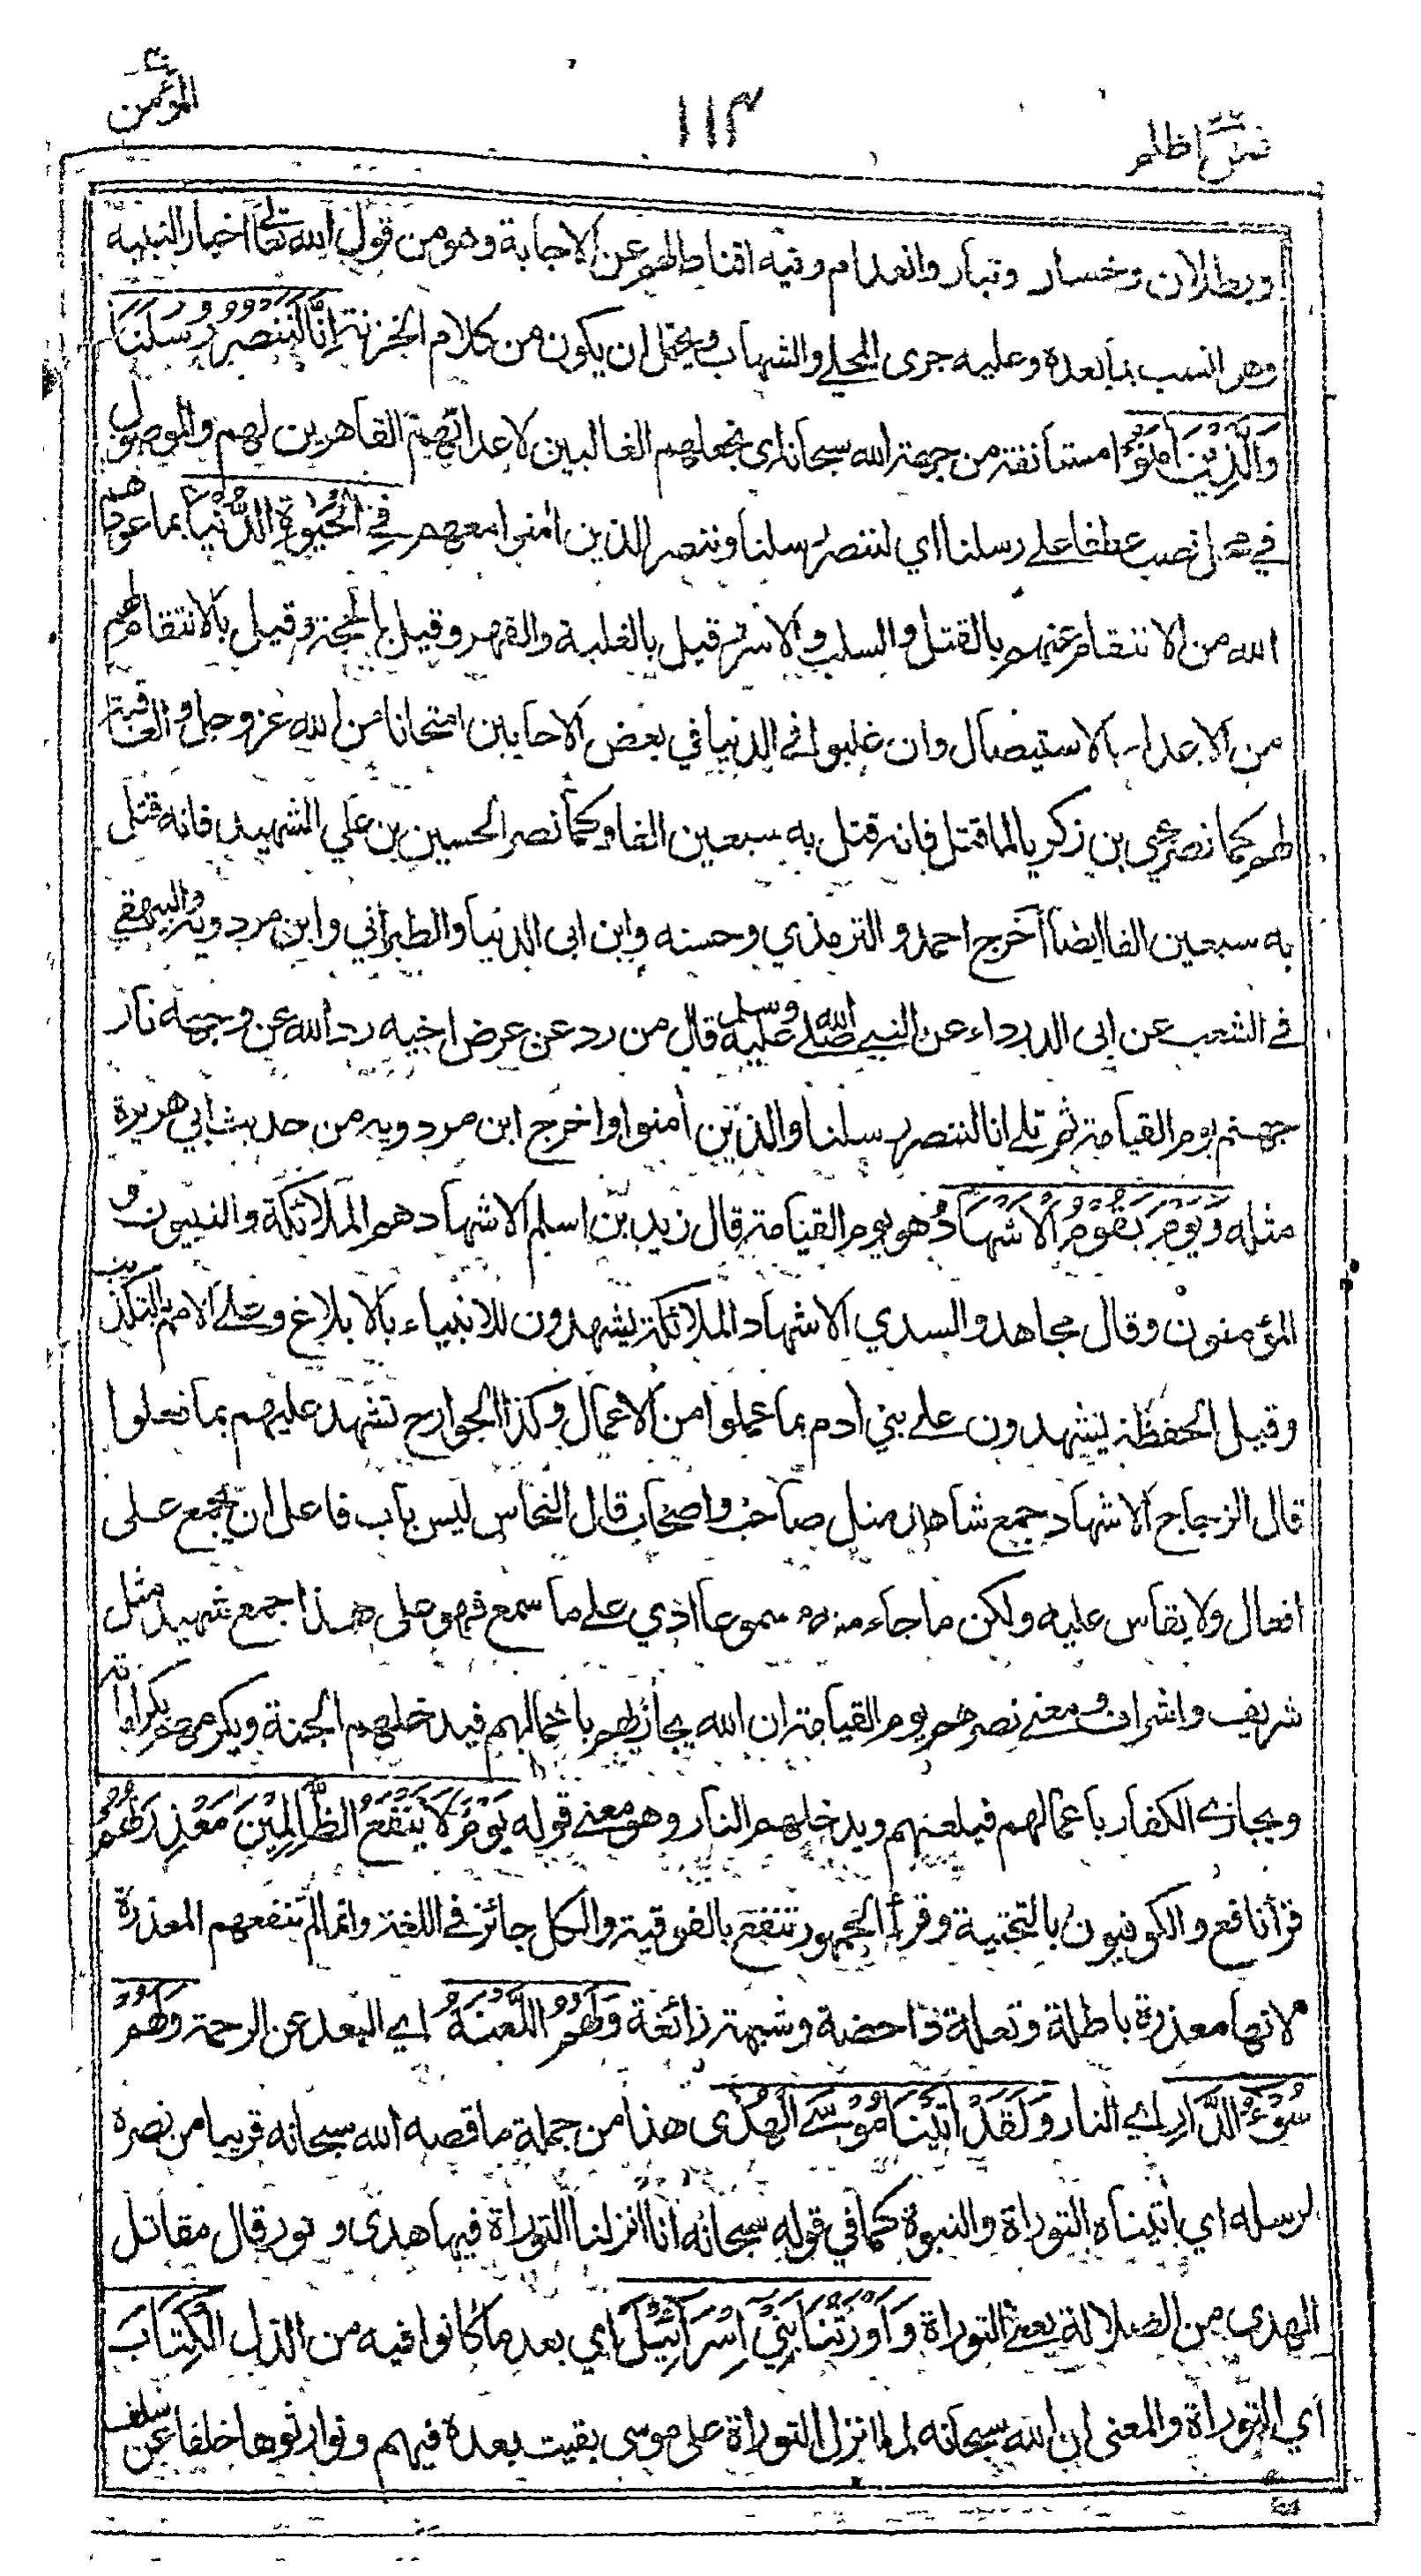 المؤمن
١١٣
فمن اظلم
وبطلان وخسار وتبار وانعدام وفيه اقناط لهم عن الاجابة وهو من قول الله تعالى اخبار النبيه
وهو انسب بما بعده وعليه جرى المحلي والشهاب ويحتمل ان يكون من كلام الخزنة اِنَّا لَنَنْصُرُ رُسُلَنَا
وَالَّذِيْنَ اٰمَنُوْا مستانفة من جهة الله سبحانه اي نجعلهم الغالبين لاعدائهم القاهرين لهم والموصول
في محل نصب عطفا على رسلنا اي لننصر رسلنا وننصر الذين امنوا معهم فِي الْحَيٰوةِ الدُّنْيَا بما عودهم
الله من الانتقام عنهم بالقتل والسلب والاسر قيل بالغلبة والقهر وقيل بالحجة وقيل بالانتقام لهم
من الاعداء بالاستيصال وان غلبوا في الدنيا في بعض الاحايين امتحانا من الله عز وجل والعاقبة
لهم كما نصر يحيى بن زكريا لما قتل فانه قتل به سبعين الفا وكما نصر الحسين بن علي الشهيد فانه قتل
به سبعين الفا ايضا اخرج احمد والترمذي وحسنه وابن ابى الدنيا والطبراني وابن مردويه والبيهقي
في الشعب عن ابى الدرداء عن النبي صلى الله عليه وسلم قال من رد عن عرض اخيه رد الله عن وجهه نار
جهنم يوم القيامة ثم تلى انا لننصر رسلنا والذين امنوا واخرج ابن مردويه من حديث ابي هريرة
مثله وَيَوْمَ يَقُوْمُ الْاَشْهَادُ هو يوم القيامة قال زيد بن اسلم الاشهاد هم الملائكة والنبيون و
المؤمنون وقال مجاهد والسدي الاشهاد الملائكة يشهدون للانبياء بالابلاغ وعلى الامم بالتكذيب
وقيل الحفظة يشهدون على بني ادم بما عملوا من الاعمال وكذا الجوارح تشهد عليهم بما فعلوا
قال الزجاج الاشهاد جمع شاهد مثل صاحب واصحاب قال النحاس ليس باب فاعل ان يجمع على
افعال ولا يقاس عليه ولكن ما جاء منه مسموعا ادي على ما سمع فهو على هذا جمع شهيد مثل
شريف واشراف ومعنى نصرهم يوم القيامة ان الله يجازيهم باعمالهم فيدخلهم الجنة ويكرمهم بكراماته
ويجازي الكفار باعمالهم فيلعنهم ويدخلهم النار وهو معنى قوله يَوْمَ لَا يَنْفَعُ الظّٰلِمِيْنَ مَعْذِرَتُهُمْ
قرأ نافع والكوفيون بالتحتية وقرأ الجمهور تنفع بالفوقية والكل جائز في اللغة وانما لم تنفعهم المعذرة
لانها معذرة باطلة وتعلة داحضة وشبهة زائغة وَلَهُمُ اللَّعْنَةُ اي البعد عن الرحمة وَلَهُمْ
سُوْٓءُ الدَّارِ اي النار وَلَقَدْ اٰتَيْنَا مُوْسَى الْهُدٰى هذا من جملة ما قصه الله سبحانه قريبا من نصره
لرسله اي اتيناه التوراة والنبوة كما في قوله سبحانه انا انزلنا التوراة فيها هدى ونور قال مقاتل
الهدى من الضلالة يعني التوراة وَاَوْرَثْنَا بَنِيْٓ اِسْرَآئِيْلَ اي بعد ما كانوا فيه من الذل الْكِتٰبَ
اي التوراة والمعنى ان الله سبحانه لما انزل التوراة على موسى بقيت بعده فيهم وتوارثوها خلفا عن سلف